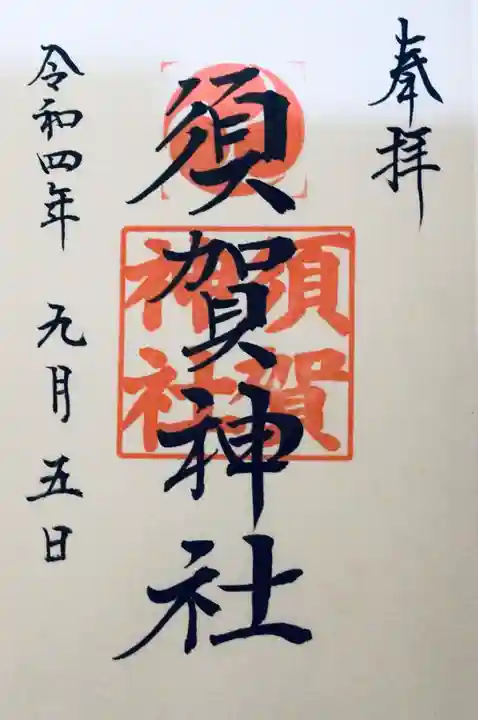 奉拝
須賀神社
須賀
神社
令和四年 九月 五日